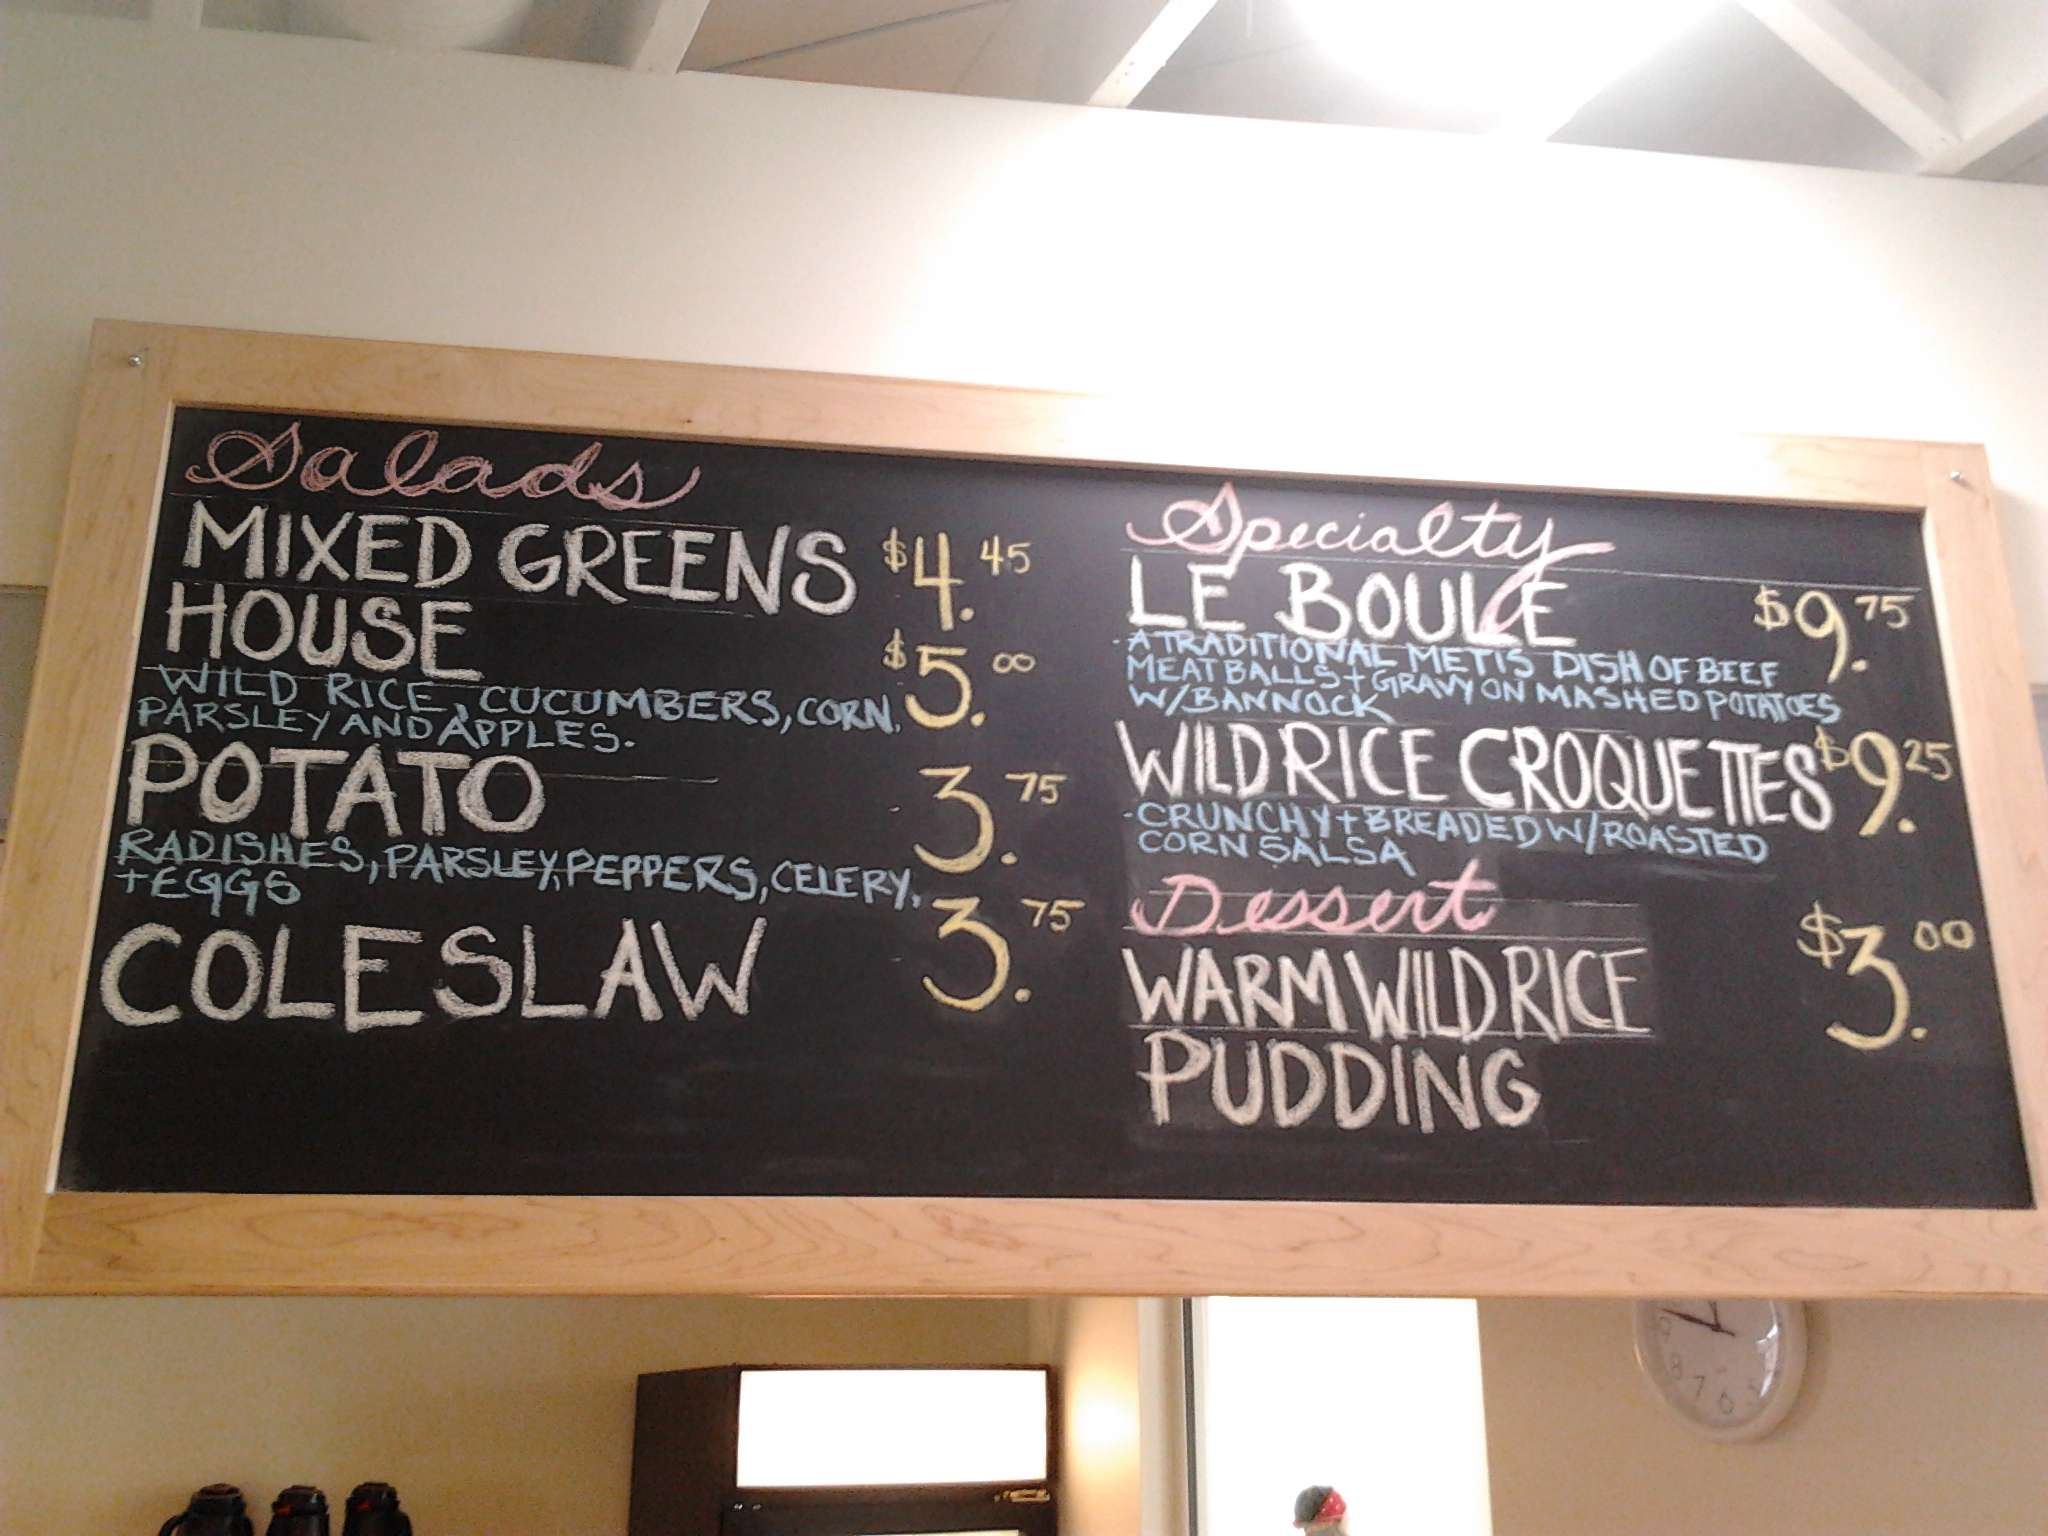 Salads
MIXED GREENS $4.45
HOUSE $5.00
WILD RICE, CUCUMBERS, CORN,
PARSLEY AND APPLES.
POTATO 3.75
RADISHES, PARSLEY, PEPPERS, CELERY,
+ EGGS
COLESLAW 3.75
Specialty
LE BOULE $9.75
- A TRADITIONAL METIS DISH OF BEEF
MEATBALLS + GRAVY ON MASHED POTATOES
W/BANNOCK
WILD RICE CROQUETTES $9.25
- CRUNCHY + BREADED W/ROASTED
CORN SALSA
Dessert
WARM WILD RICE $3.00
PUDDING
9
8
7
6
5